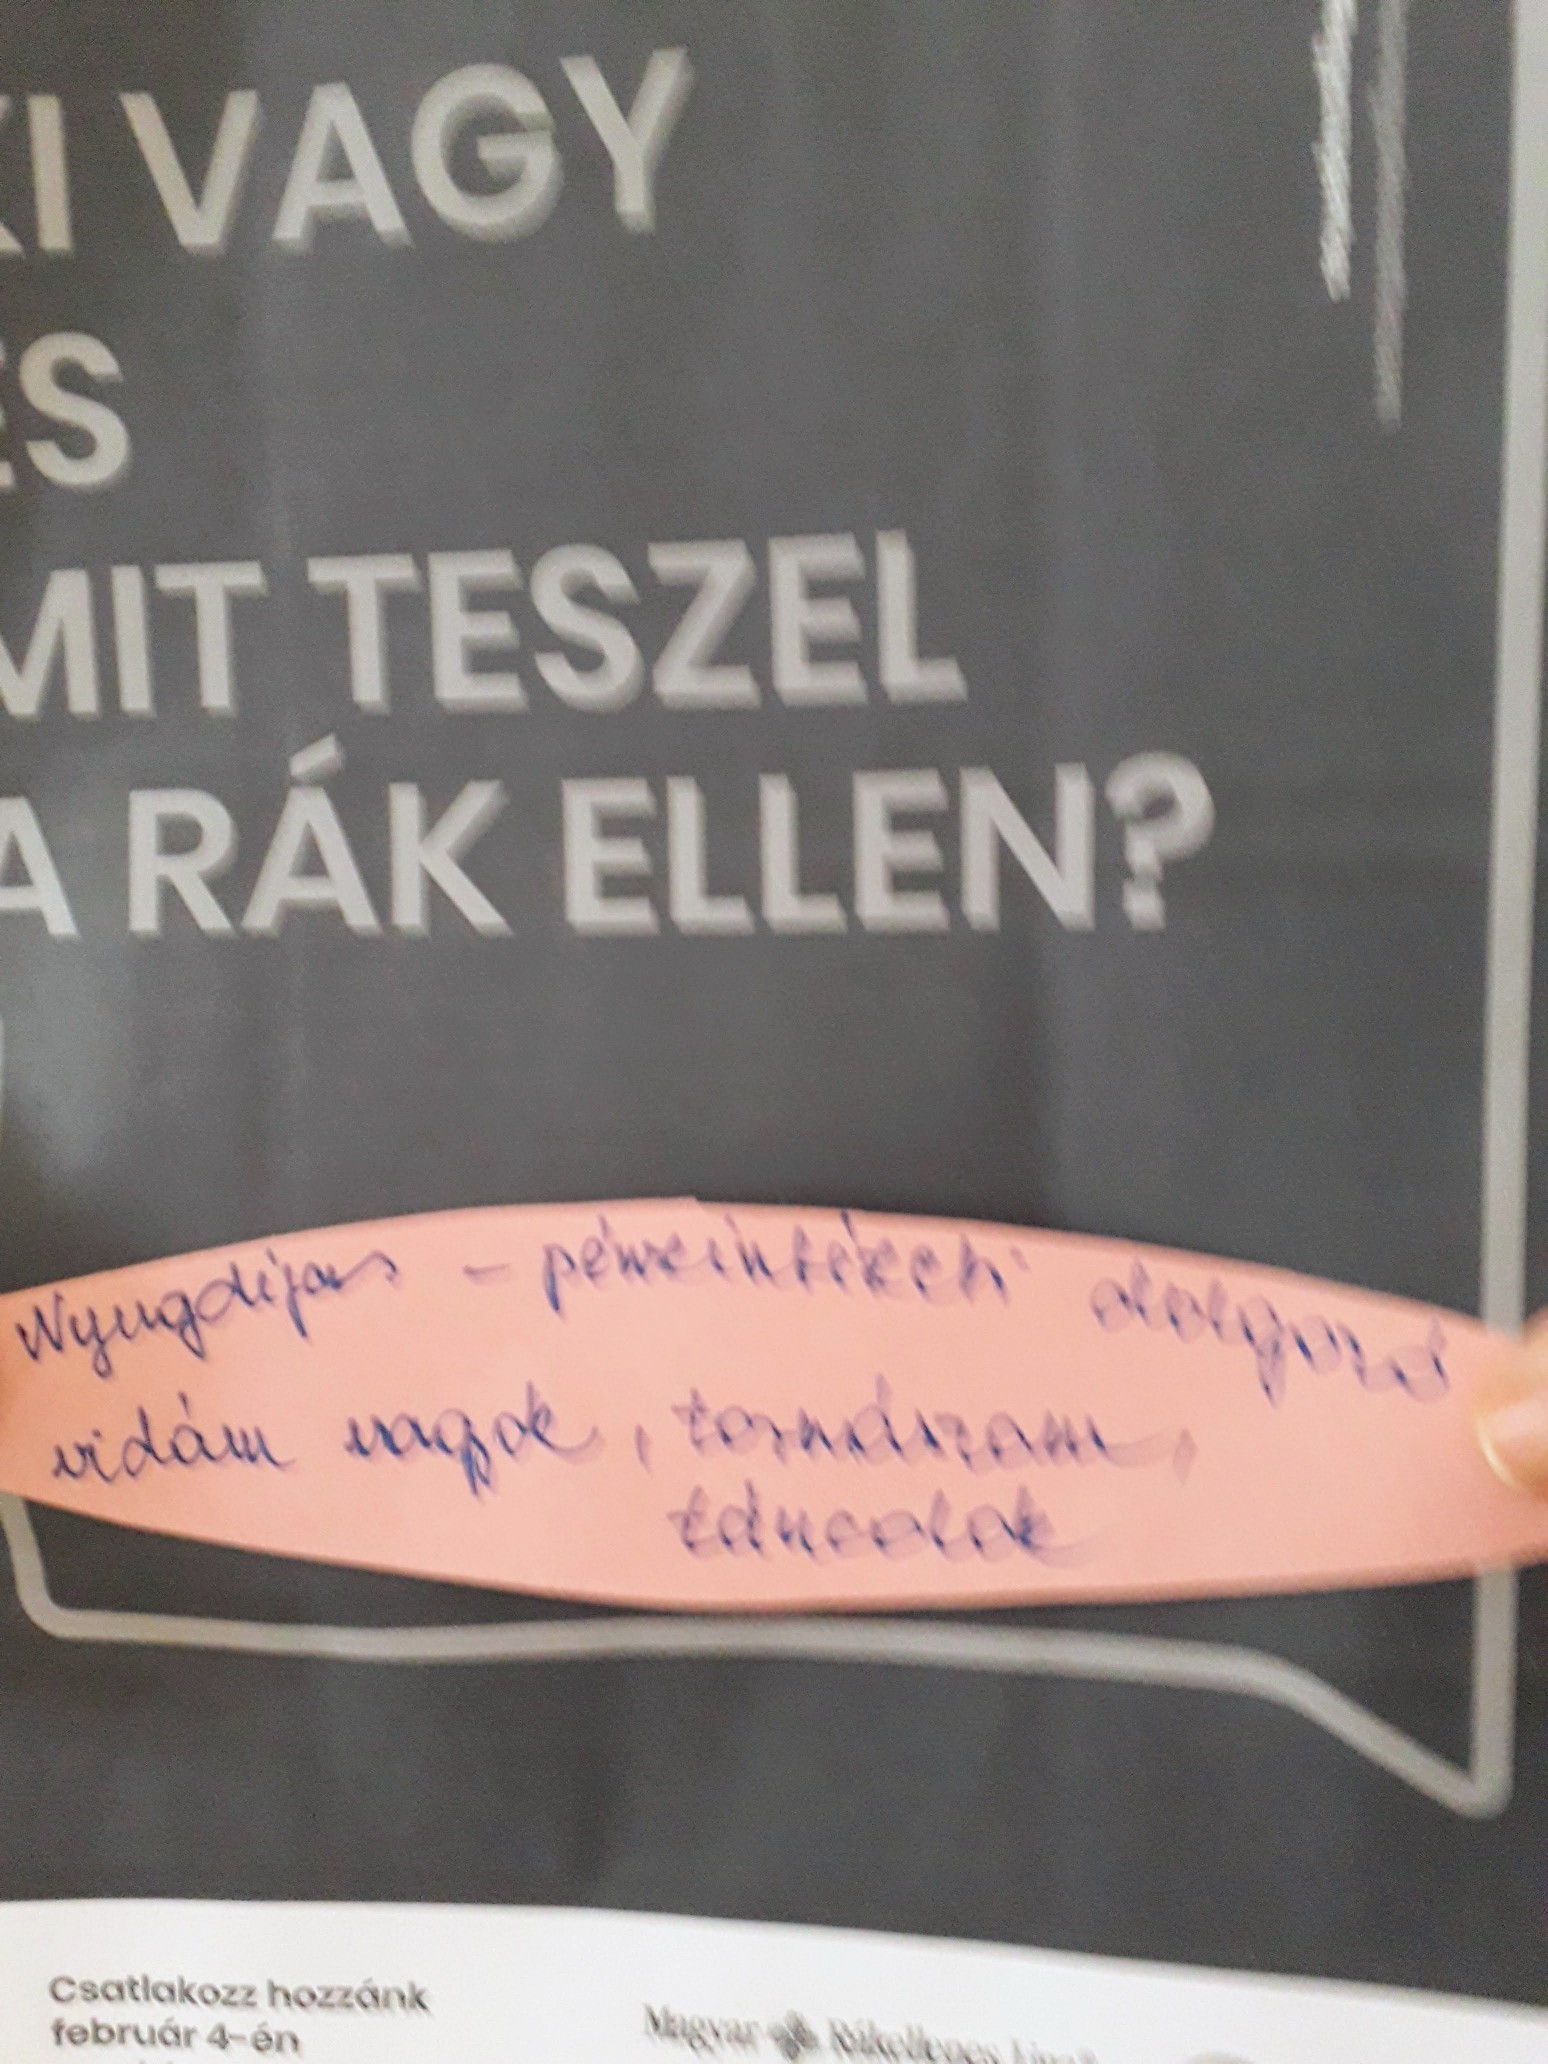 KI VAGY
ÉS
MIT TESZEL
A RÁK ELLEN?
Nyugdíjas - pénzintézeti dolgozó
vidám vagyok, tornászom,
táncolok
Csatlakozz hozzánk
február 4-én
Magyar Rákellenes Liga